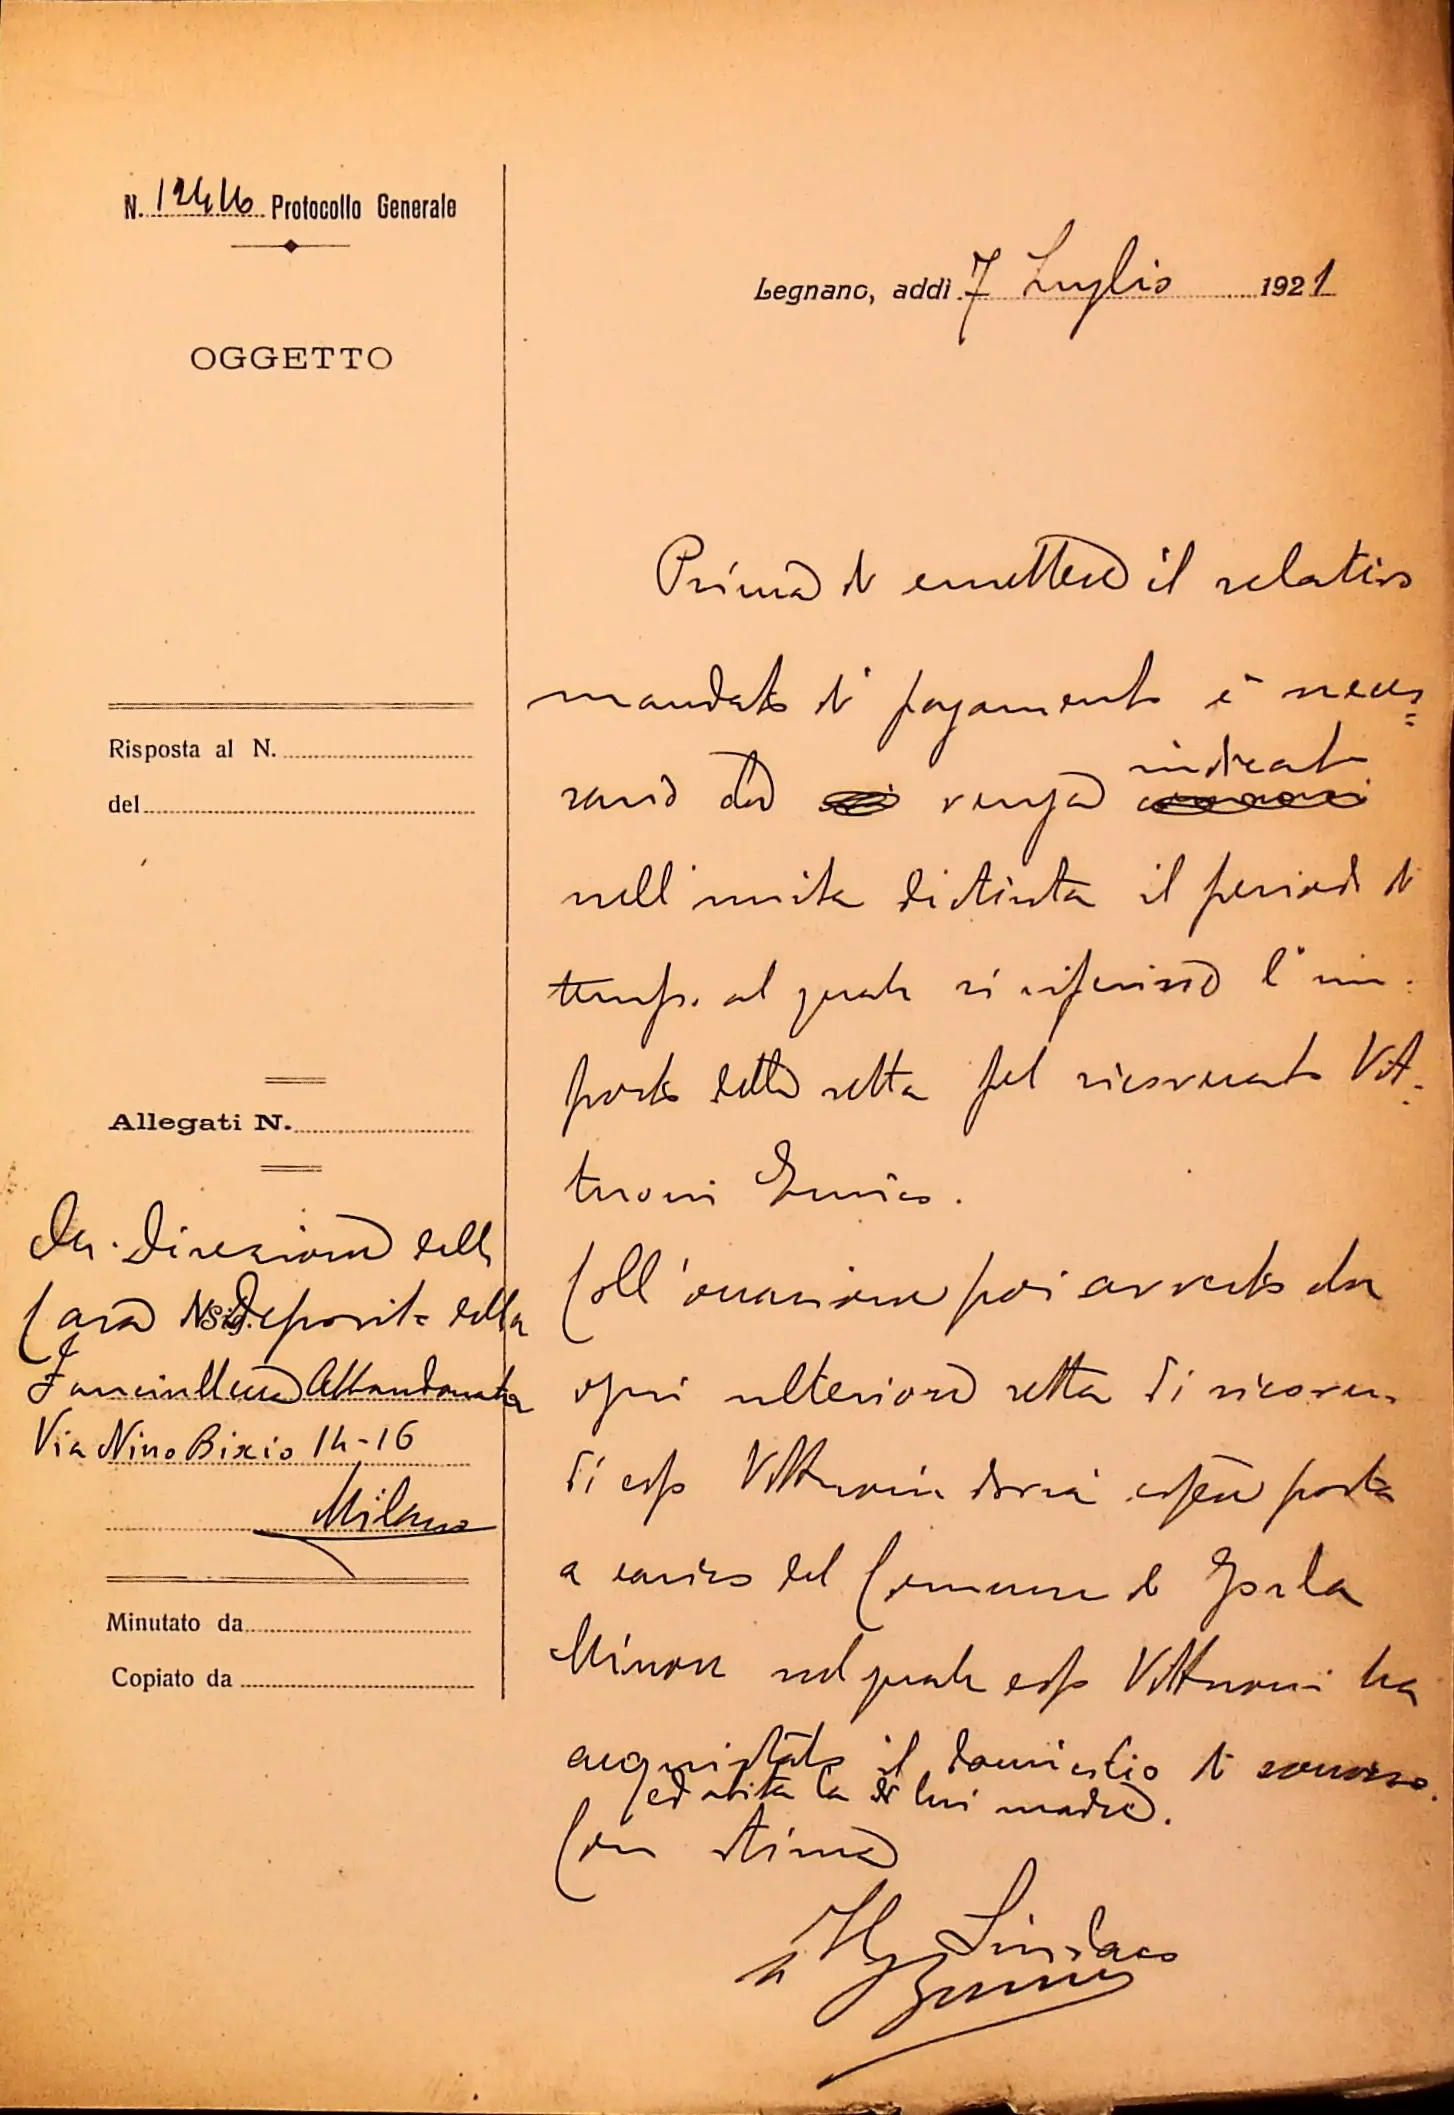 N. 12446 Protocollo Generale
Legnano, addì 7 Luglio 1921
OGGETTO
Risposta al N.
del
Allegati N.
Direzione della
Casa Deposito della
Fanciullezza Abbandonata
Via Nino Bixio 14-16
Milano
Minutato da
Copiato da
Prima di emettere il relativo
mandato di pagamento è neces=
sario che venga indicato
nell'unita distinta il periodo di
tempo al quale si riferisce l'im-
porto della retta pel ricoverato Vit-
turoni Enrico.
Coll'occasione poi avverto che
ogni ulteriore retta di ricovero
di esso Vitturoni dovrà essere posta
a carico del Comune di Gorla
Minore nel quale esso Vitturoni ha
acquistato il domicilio di soccorso
ed abita la di lui madre.
Con stima
Il Sindaco